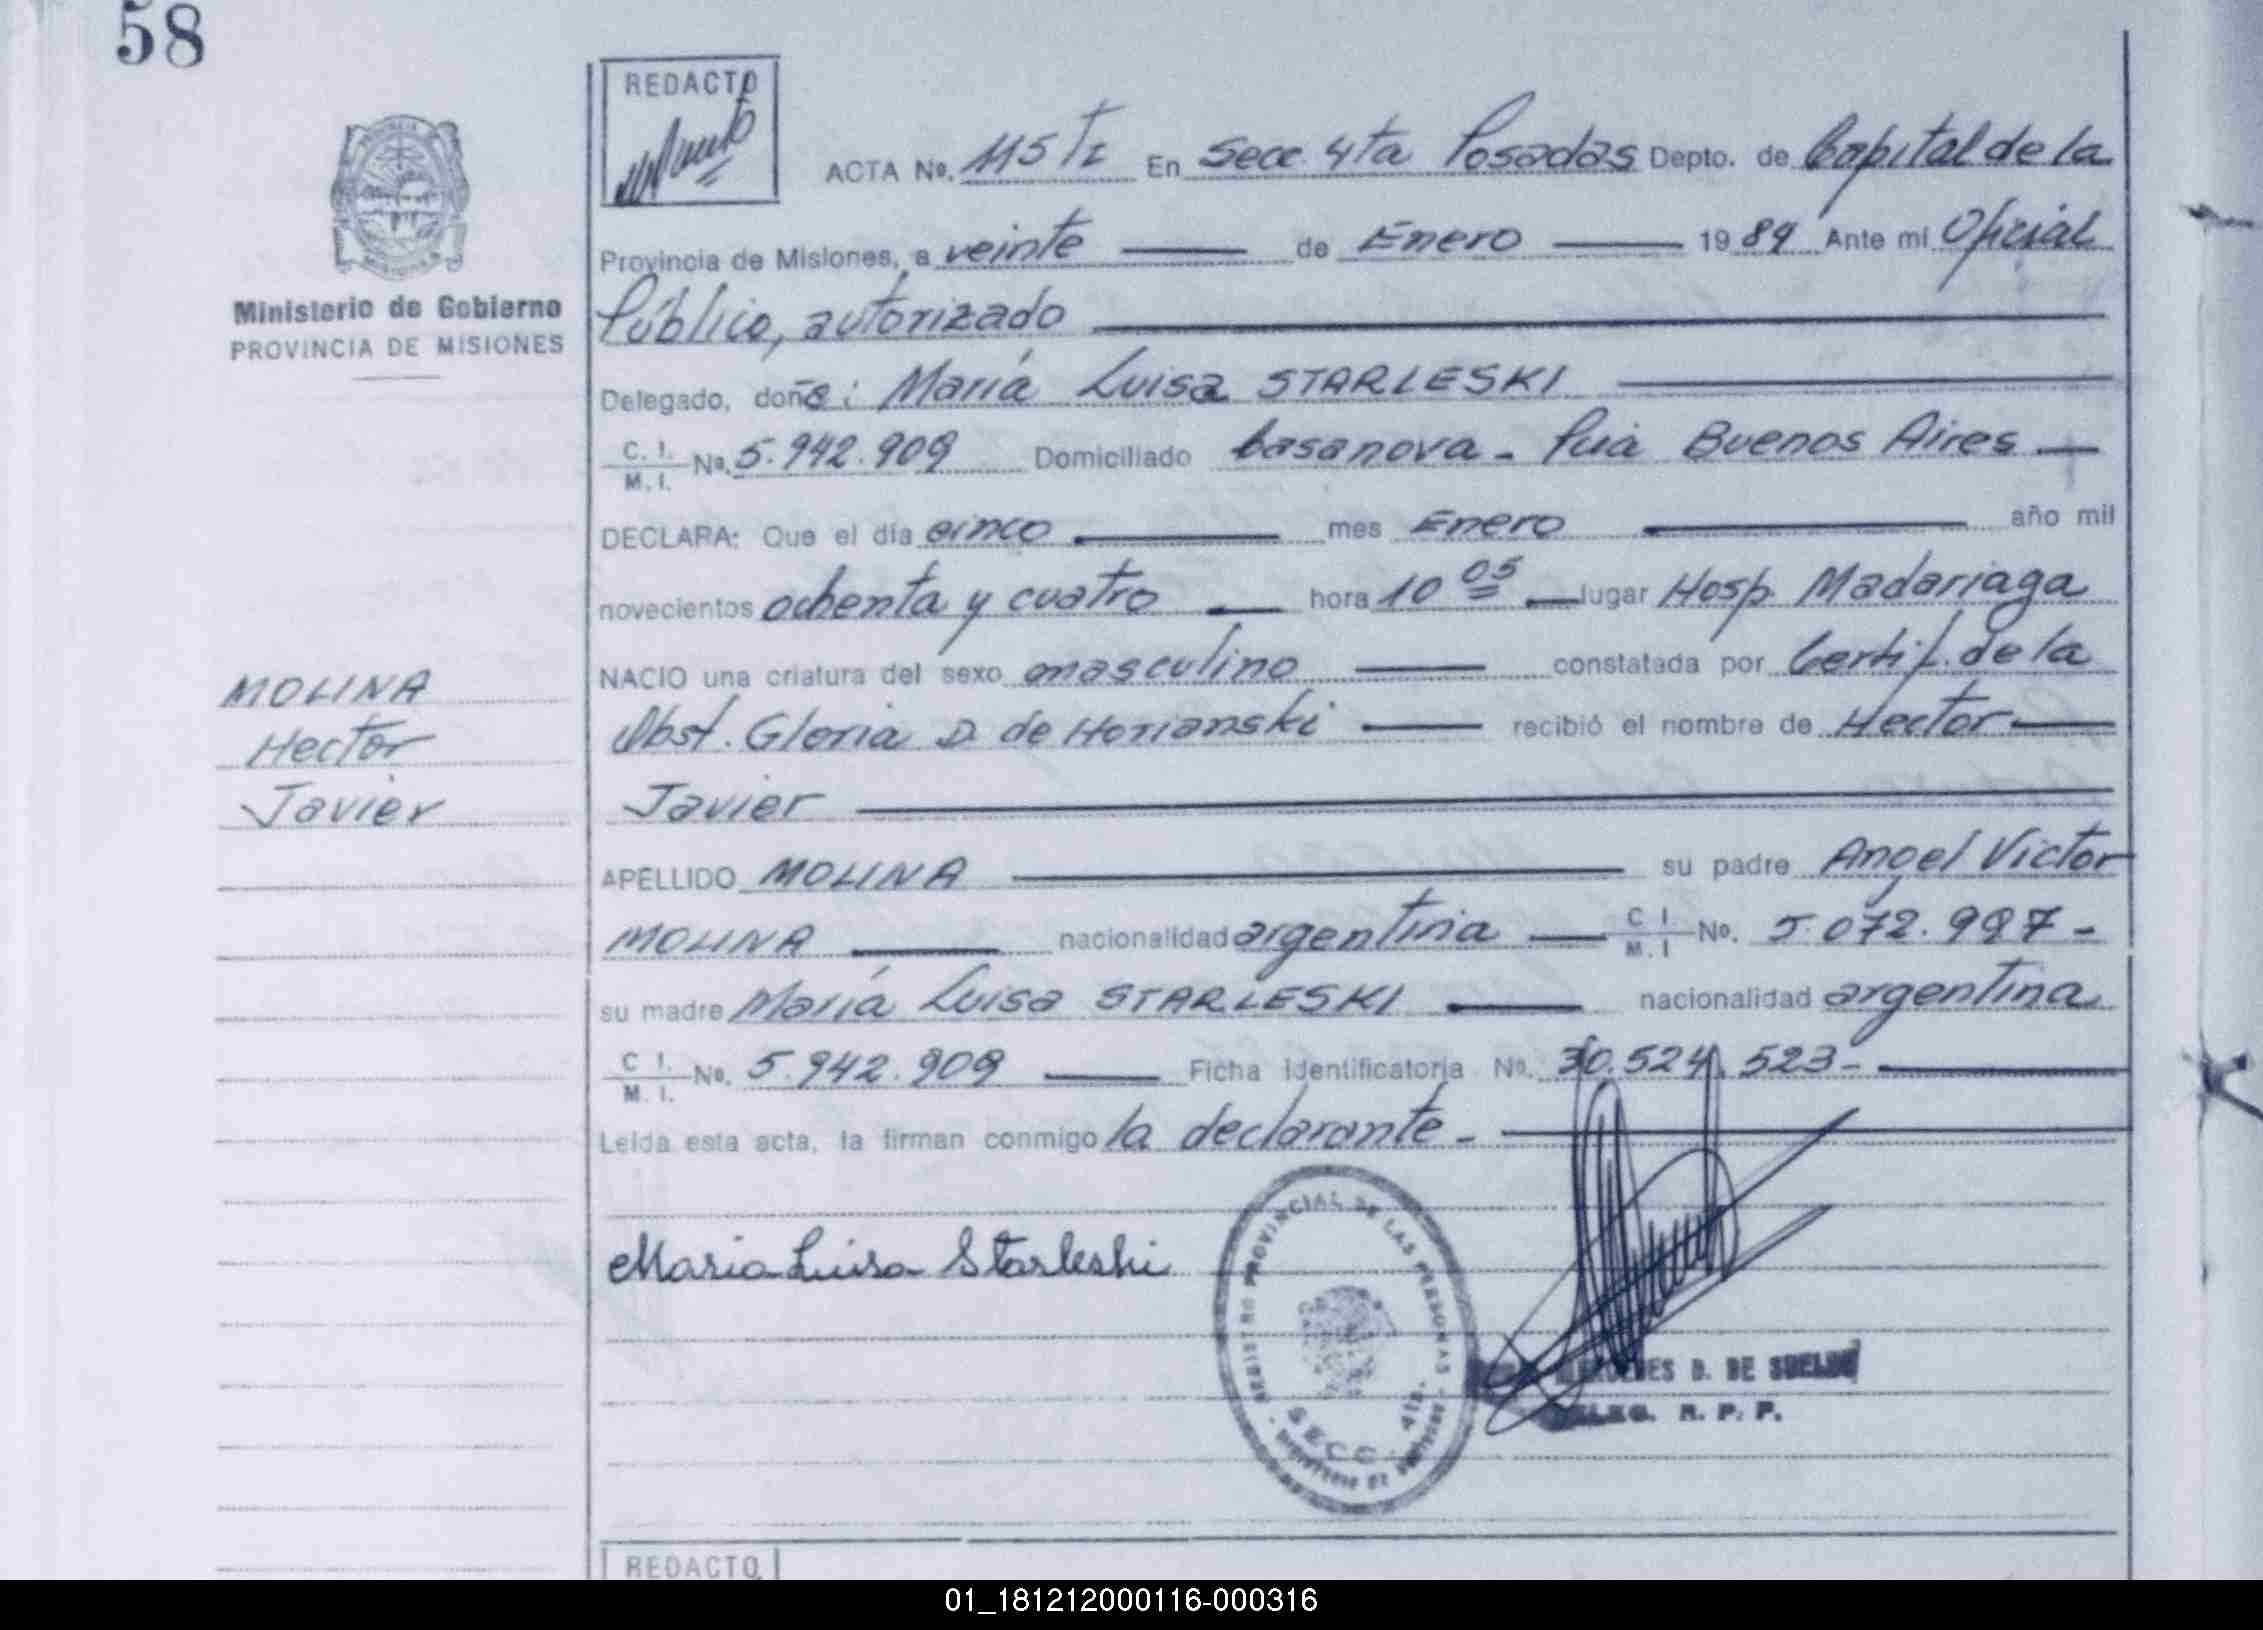 58
REDACTO
ACTA No. 115 TI En Secc 4ta Posadas Depto. de Capital de la
Provincia de Misiones, a veinte de Enero 1984 Ante mi Oficial
Ministerio de Gobierno
PROVINCIA DE MISIONES
Público, autorizado
Delegado, doña: María Luisa STARLESKI
C. I. M. I. No. 5.942.909 Domiciliado Casanova - Pcia Buenos Aires
DECLARA: Que el día cinco mes Enero año mil
novecientos ochenta y cuatro hora 10 05 lugar Hosp. Madariaga
NACIO una criatura del sexo masculino constatada por Certif. de la
Obst. Gloria D. de Horianski recibió el nombre de Hector
Javier
MOLINA
Hector
Javier
APELLIDO MOLINA su padre Angel Victor
MOLINA nacionalidad argentina C I. M. I No. 5.072.997-
su madre María Luisa STARLESKI nacionalidad argentina
C I. M. I. No. 5.942.909 Ficha Identificatoria No. 30.524.523-
Leída esta acta, la firman conmigo la declarante-
Maria Luisa Starleski
REGISTRO PROVINCIAL DE LAS PERSONAS
SECC. 4ta.
D. DE
R. P. P.
REDACTO
01_181212000116-000316